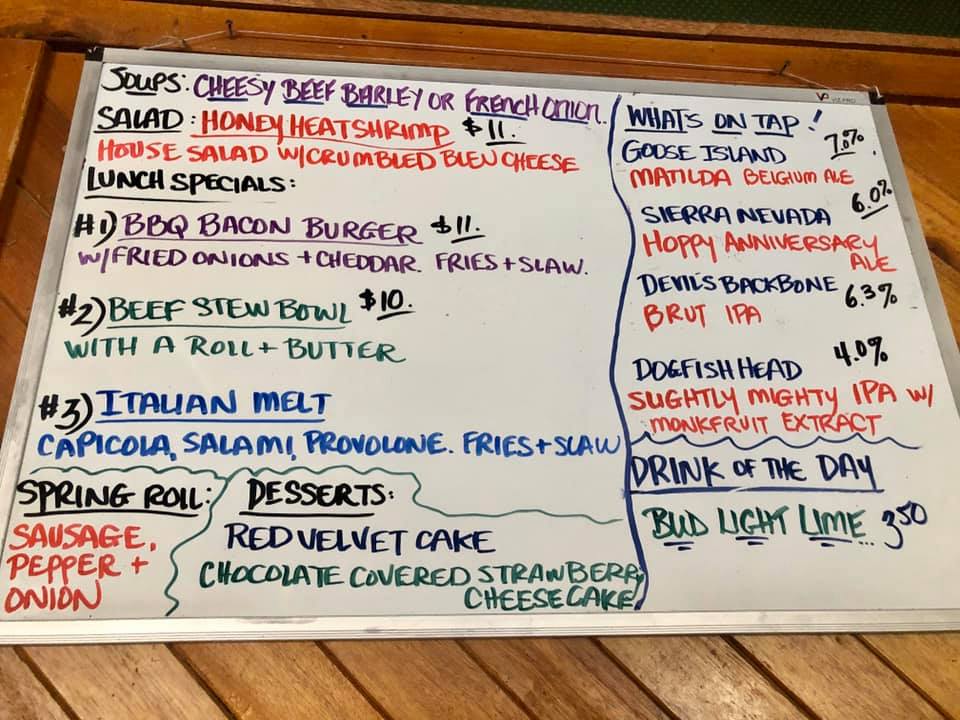 SOUPS: CHEESY BEEF BARLEY OR FRENCH ONION.
SALAD: HONEY HEAT SHRIMP $11.
HOUSE SALAD W/CRUMBLED BLEU CHEESE
LUNCH SPECIALS:
#1) BBQ BACON BURGER $11.
W/FRIED ONIONS + CHEDDAR. FRIES + SLAW.
#2) BEEF STEW BOWL $10.
WITH A ROLL + BUTTER
#3) ITALIAN MELT
CAPICOLA, SALAMI, PROVOLONE. FRIES + SLAW
SPRING ROLL:
SAUSAGE,
PEPPER +
ONION
DESSERTS:
RED VELVET CAKE
CHOCOLATE COVERED STRAWBERRY
CHEESECAKE
VIZ-PRO
WHAT'S ON TAP!
GOOSE ISLAND 7.0%
MATILDA BELGIUM ALE
SIERRA NEVADA 6.0%
HOPPY ANNIVERSARY
ALE
DEVIL'S BACKBONE 6.3%
BRUT IPA
DOGFISH HEAD 4.0%
SLIGHTLY MIGHTY IPA W/
MONKFRUIT EXTRACT
DRINK OF THE DAY
BUD LIGHT LIME... 350